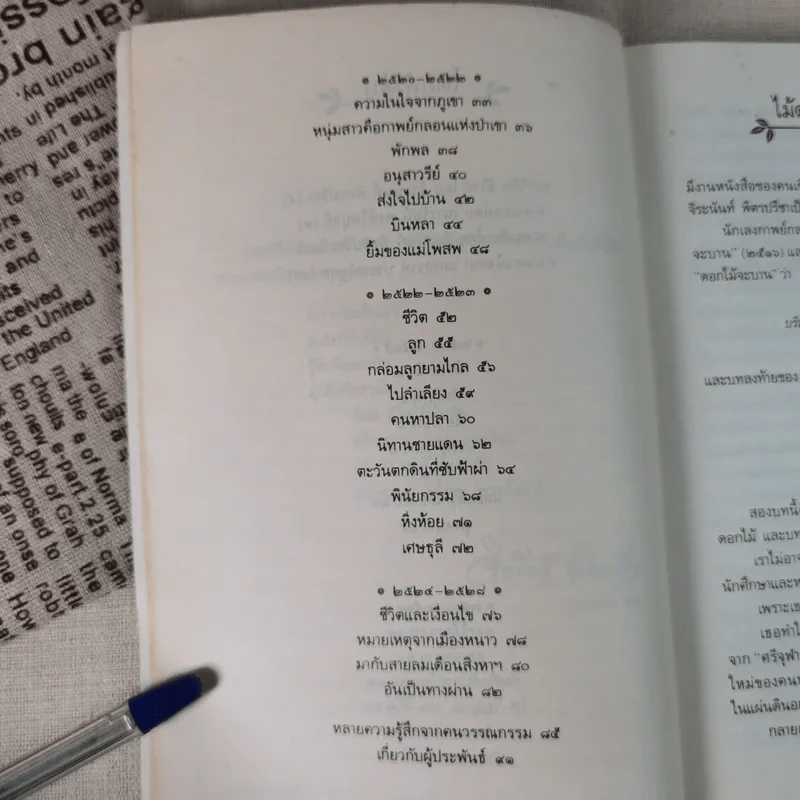 ๏ ๒๕๒๐-๒๕๒๒ ๏
ความในใจจากภูเขา ๓๓
หนุ่มสาวคือกาพย์กลอนแห่งป่าเขา ๓๖
พักพล ๓๘
อนุสาวรีย์ ๔๐
ส่งใจไปบ้าน ๔๒
บินหลา ๔๔
ยิ้มของแม่โพสพ ๔๘
๏ ๒๕๒๒-๒๕๒๓ ๏
ชีวิต ๕๒
ลูก ๕๕
กล่อมลูกยามไกล ๕๖
ไปลำเลียง ๕๙
คนหาปลา ๖๐
นิทานชายแดน ๖๒
ตะวันตกดินที่ซับฟ้าผ่า ๖๔
พินัยกรรม ๖๘
หิ่งห้อย ๗๑
เศษธุลี ๗๒
๏ ๒๕๒๔-๒๕๒๘ ๏
ชีวิตและเงื่อนไข ๗๖
หมายเหตุจากเมืองหนาว ๗๘
มากับสายลมเดือนสิงหาฯ ๘๐
อันเป็นทางผ่าน ๘๒
หลายความรู้สึกจากคนวรรณกรรม ๘๕
เกี่ยวกับผู้ประพันธ์ ๙๑
มีงานหนังสือของคน
จิระนันท์ พิตรปรีชา
นักเลงกาพย์
จะบาน" (๒๕๑๖)
"ดอกไม้จะบาน" ว่า
และบทลงท้ายของ
สองบทนี้
ดอกไม้ และ
เราไม่อาจ
นักศึกษาและ
เพราะ
เธอทำ
จาก "ศรีจุฬา
ใหม่ของคน
ในแผ่นดิน
กลาย
gain
published in
month by
The Life
to
and
received
the United
England
chouils e of Norma
e-part.2.25
ion new phy of Grah
supposed to
little